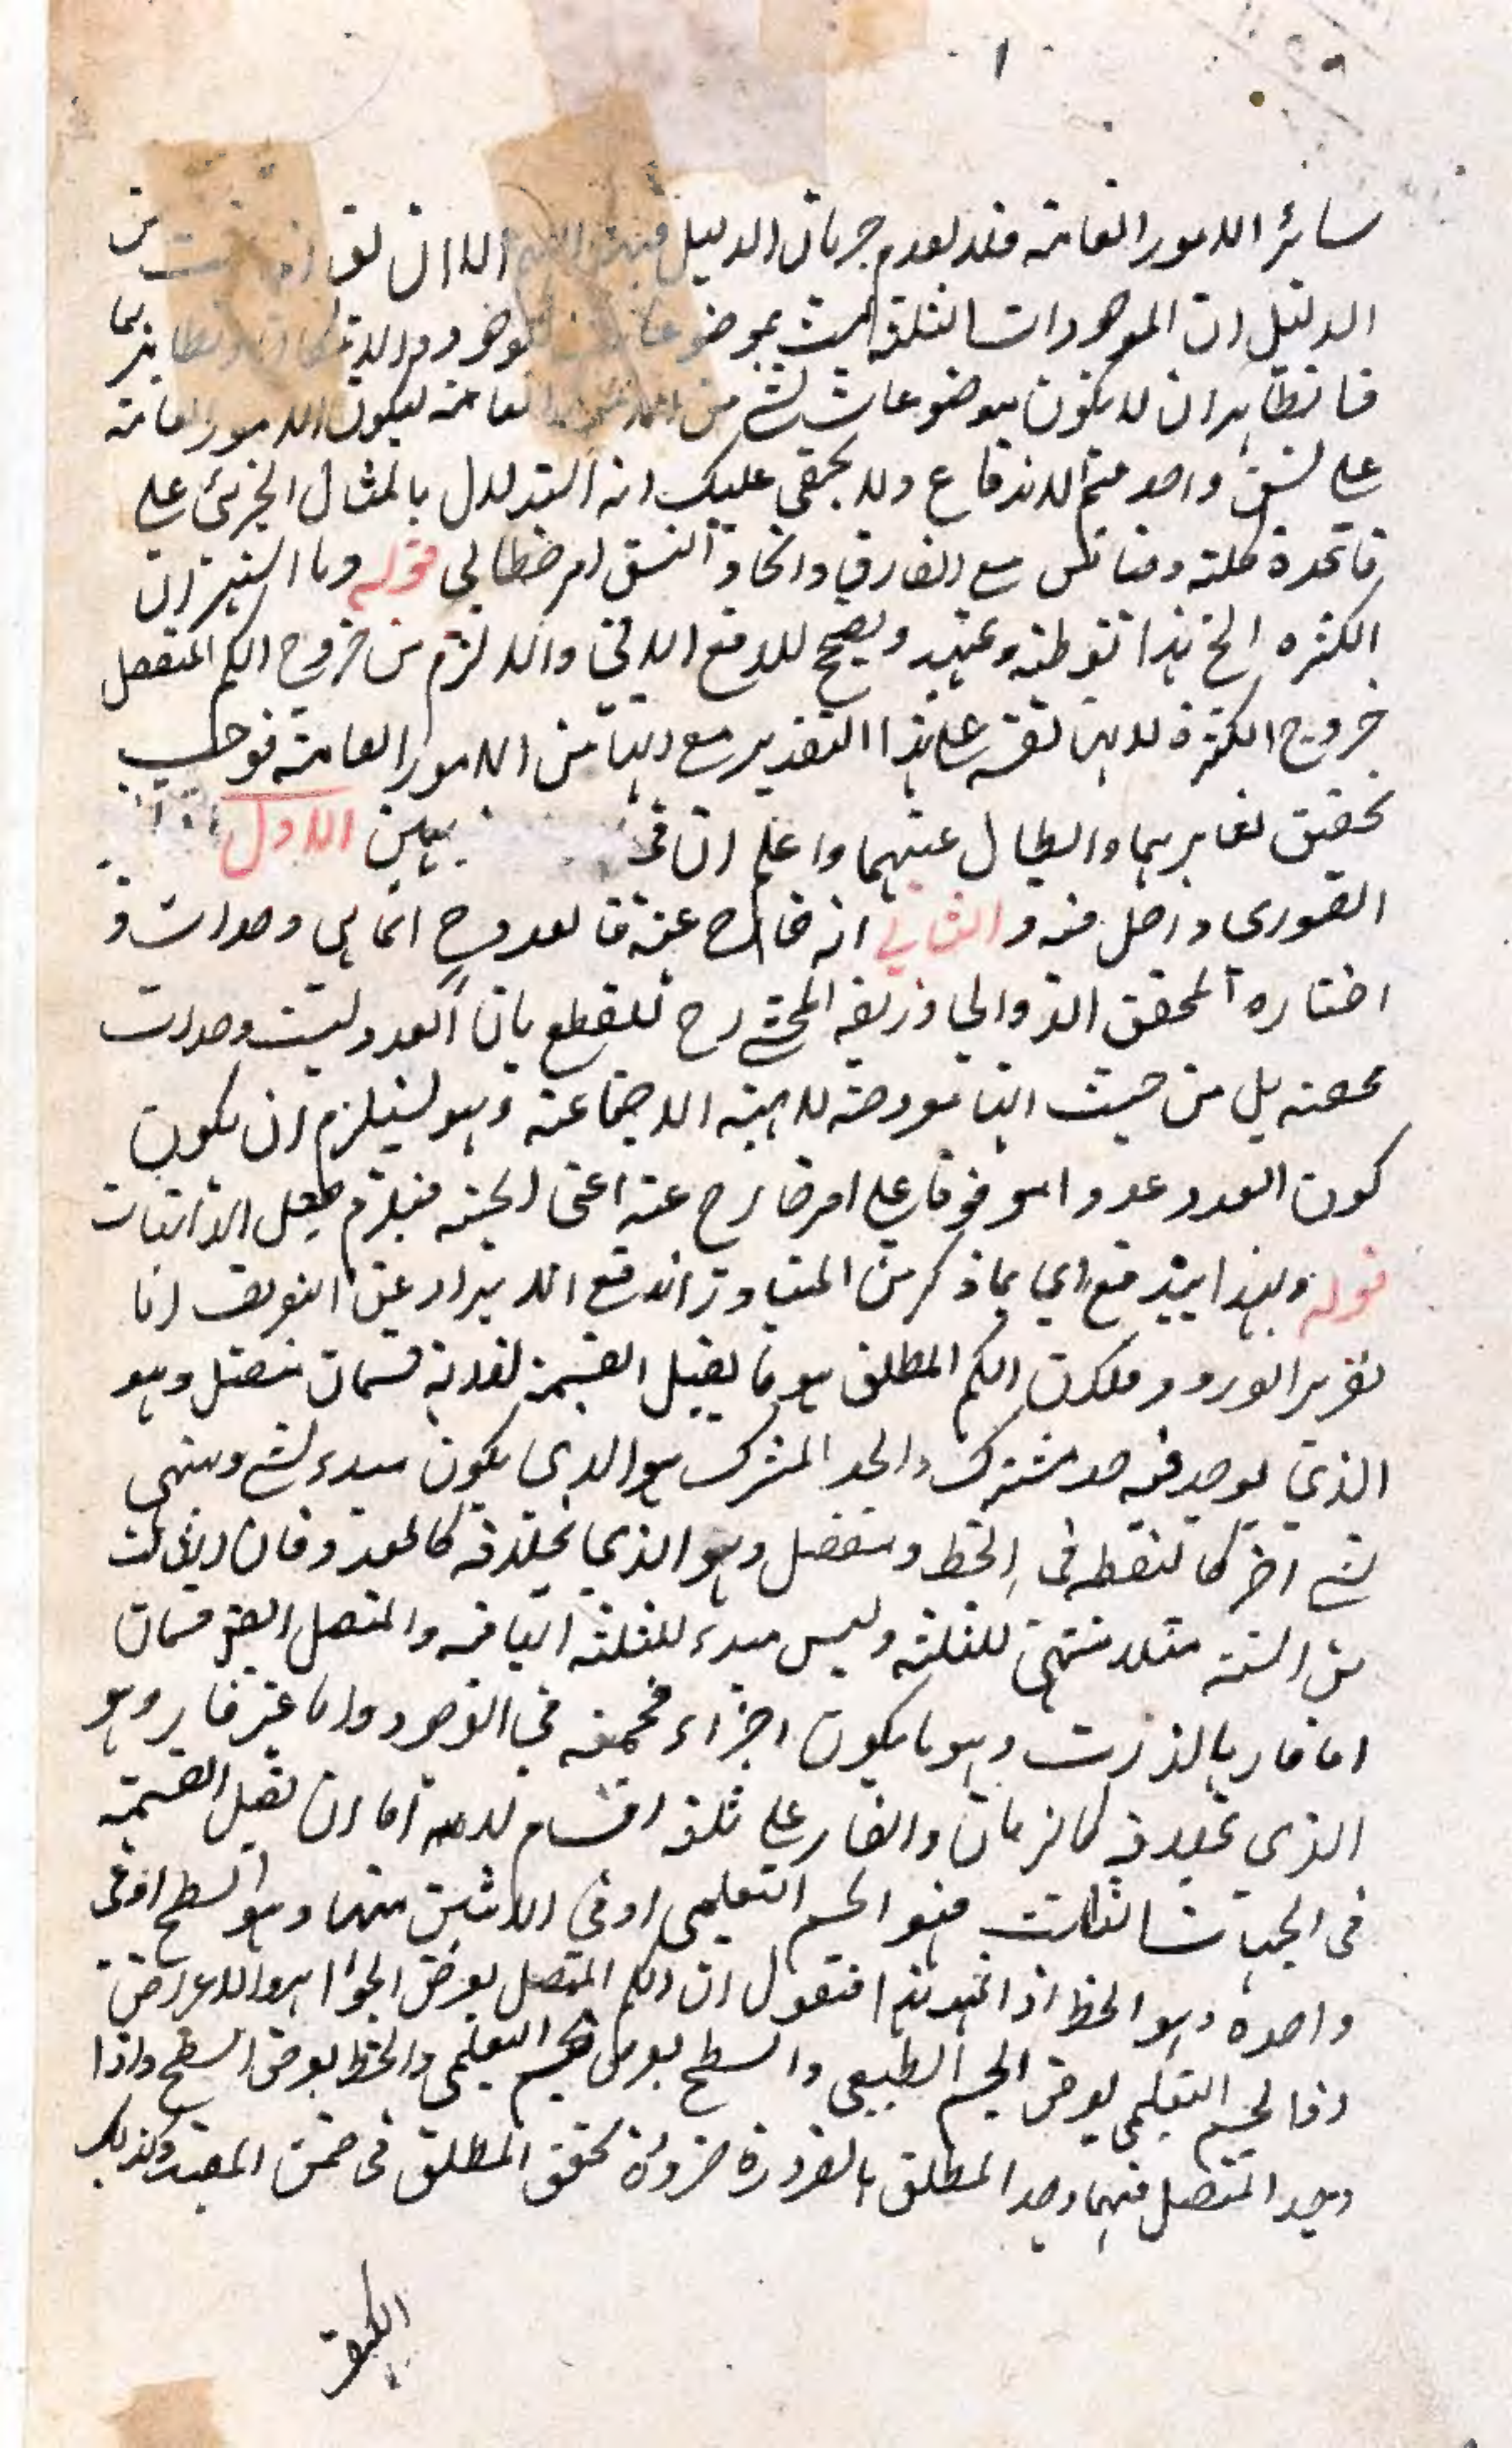 ١
سائر الامور العامة فلا لعدم جريان الدليل الا ان يق من
الدليل ان الموجودات الثلثة ليست بموضوعات
فالظاهر ان لا يكون بموضوعات لشئ من العامة ليكون الامور العامة
على نسق واحد فيتم الاندفاع ولا يخفى عليك انه استدلال بالمثال الجزئي على
قاعدة كلية وقياس مع الفارق واتحاد النسق امر خطابي قوله وما اشتهر ان
الكثرة الخ هذا توطية وتمهيد ويصح للدفع الاتي واللا لزم من خروج الكم المنفصل
خروج الكثرة لانها نفسه على هذا التقدير مع انها من الامور العامة فوجب
تحقيق تغايرهما وابطال عينيتهما واعلم ان في بين الاول
الصوري داخل فيه والثاني انه خارج عنه فالعدد ح انما هي وحدات و
اختاره المحقق الدواني وزيفه المحشي رح للقطع بان العدد ليست وحدات
محضة بل من حيث انها معروضة للهيئة الاجتماعية وهو يستلزم ان يكون
كون العدد عددا موقوفا على امر خارج عنه اعني الهيئة فيلزم جعل الذاتيات
قوله وبهذا يندفع اي بما ذكر من المتبادر اندفع الايراد عن التعريف اما
تقرير الورود فلان الكم المطلق هو ما يقبل القسمة لذاته قسمان متصل وهو
الذي يوجد فيه حد مشترك والحد المشترك هو الذي يكون مبدء لشئ ومنتهى
لشئ اخر كالنقطة في الخط ومنفصل وهو الذي بخلافه كالعدد فان الثالث
من الستة مثلا منتهى للثلثة وليس مبدء للثلثة الباقية والمتصل ايضا قسمان
اما قار بالذات وهو ما يكون اجزاء مجتمعة في الوجود واما غير قار وهو
الذي بخلافه كالزمان والقار على ثلثة اقسام لانه اما ان يقبل القسمة
في الجهات الثلث فهو الجسم التعليمي او في الاثنين منهما وهو السطح او في
واحدة وهو الخط اذا تمهد هذا فنقول ان الكم المتصل يعرض الجواهر والاعراض
اذ الجسم التعليمي يعرض الجسم الطبيعي والسطح يعرض الجسم التعليمي والخط يعرض السطح واذا
وجد المتصل فيهما وجد المطلق بالضرورة ضرورة تحقق المطلق في ضمن المقيد وكذلك